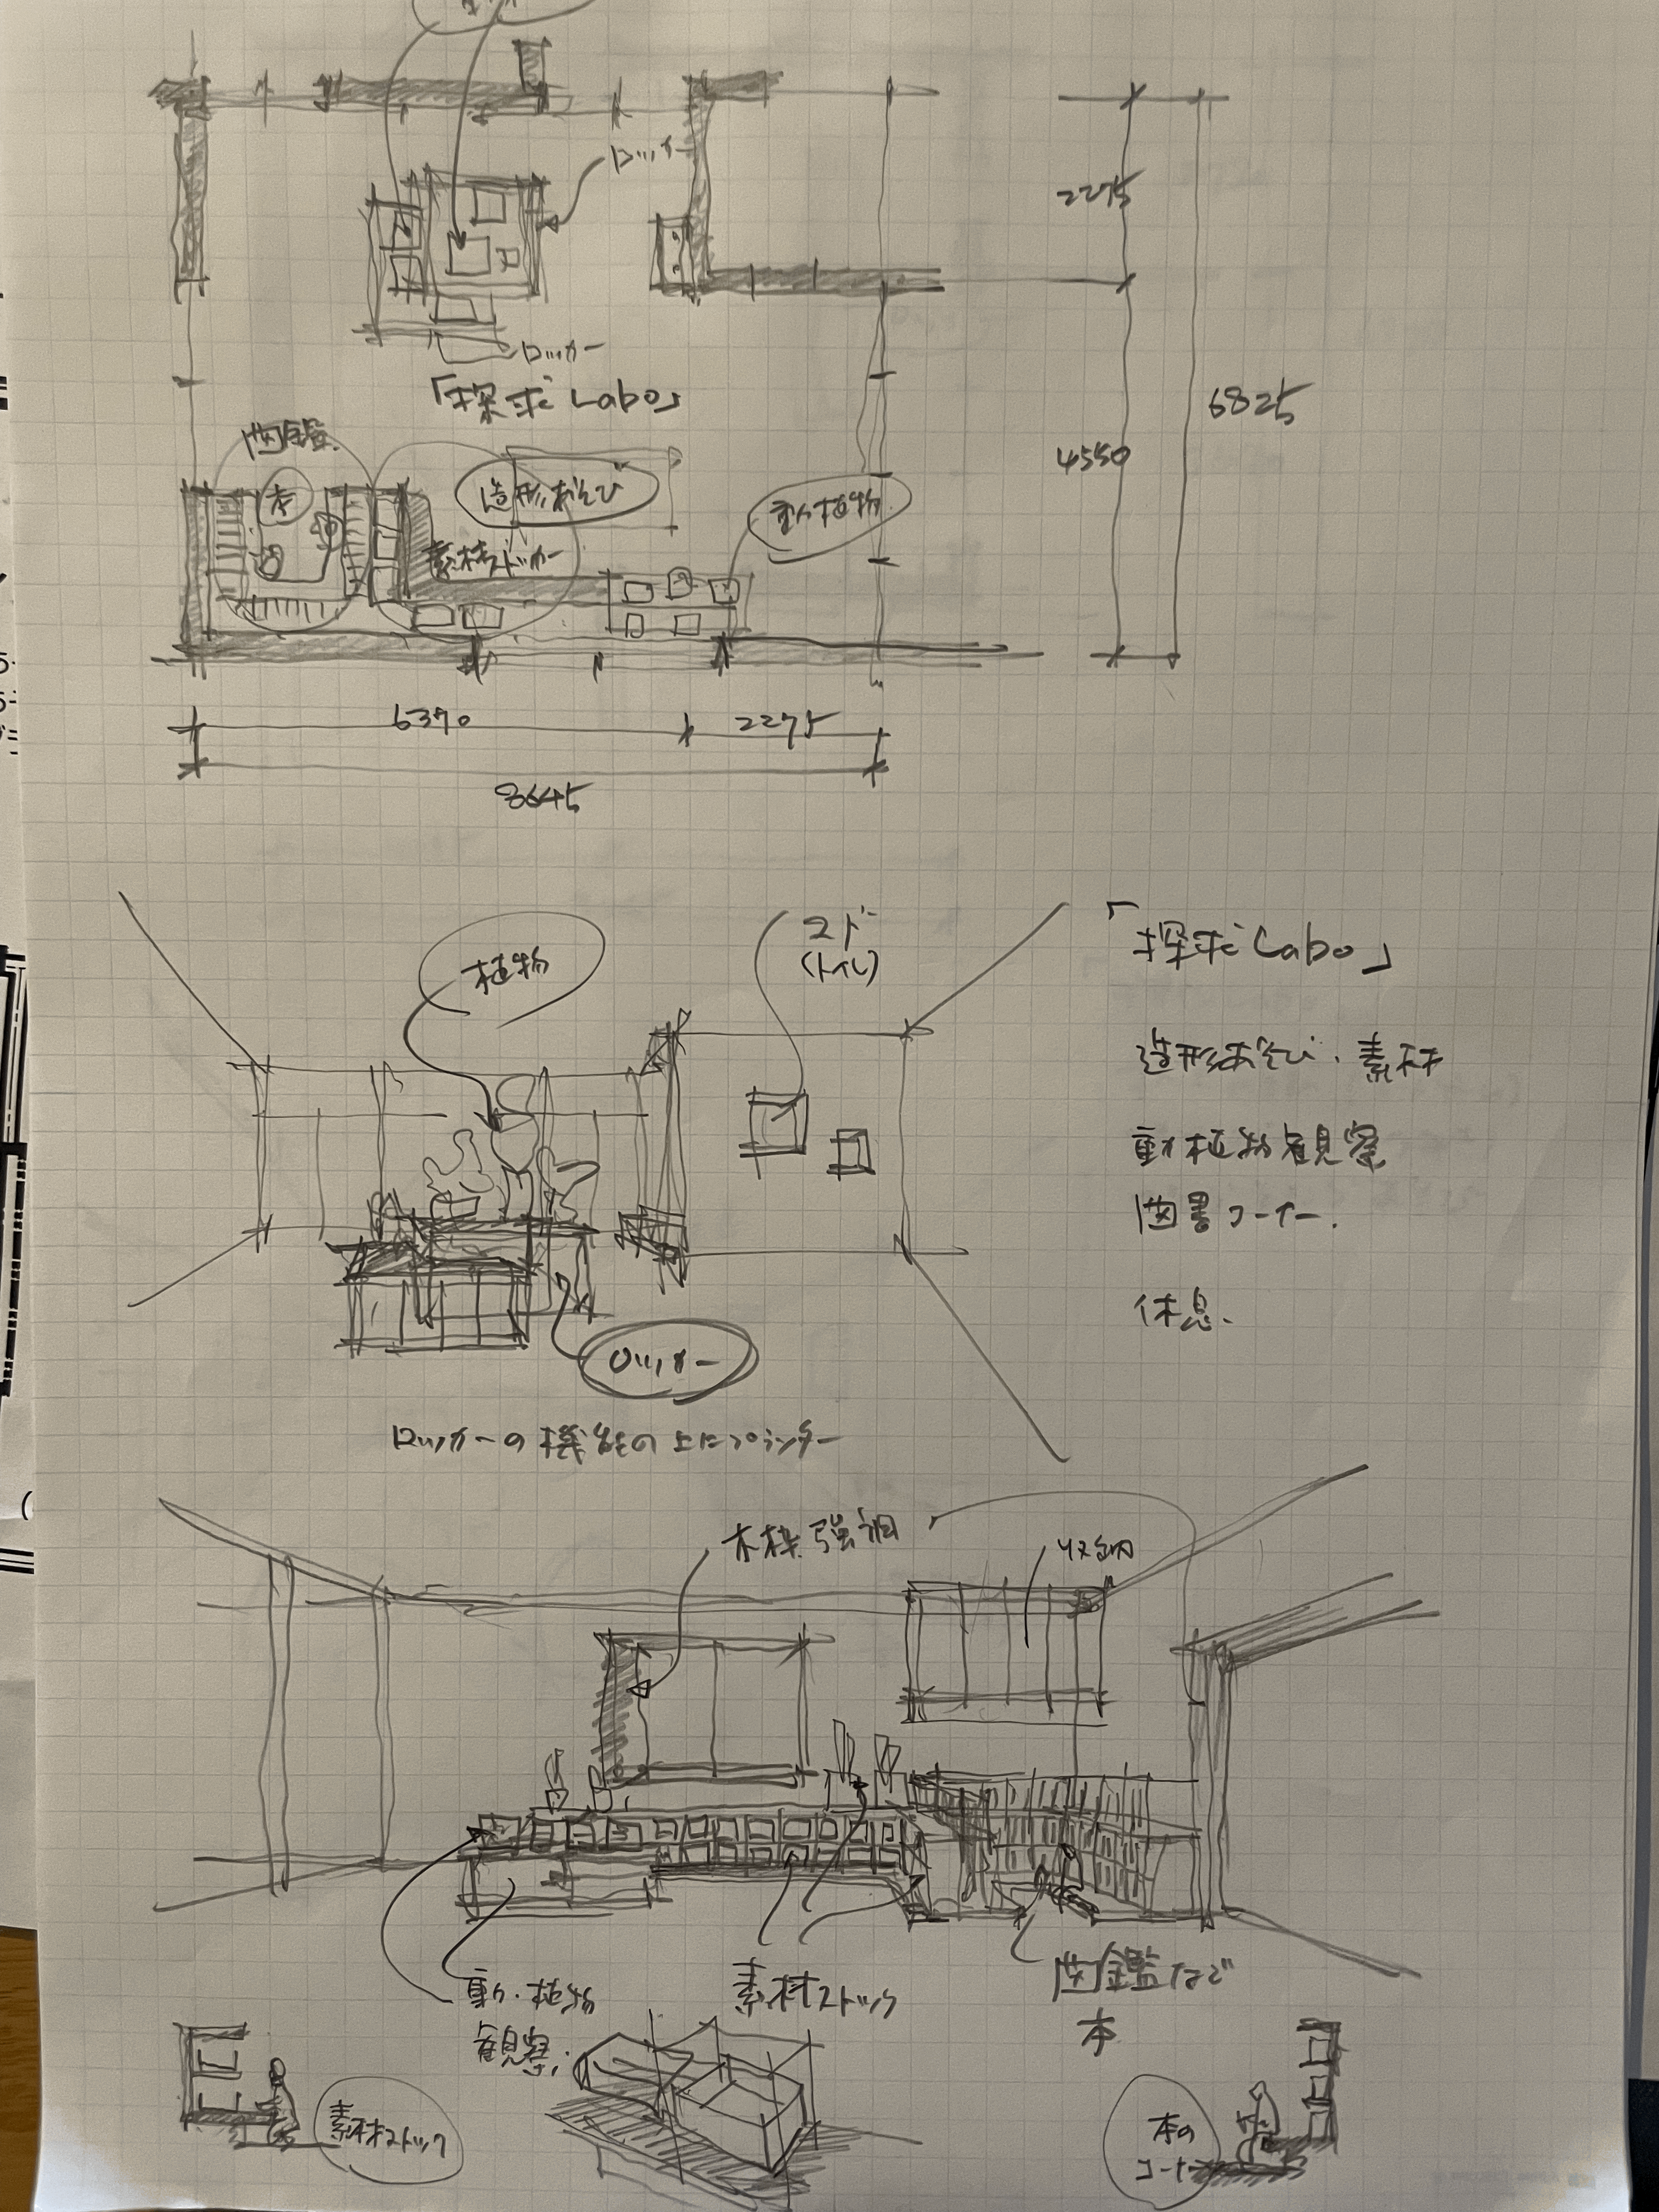 ロッカー
2275
ロッカー
「探求Labo」
6825
図鑑
本
造形あそび
動植物
4550
素材ストッカー
6370
2275
8645
植物
マド
(トイレ)
「探求Labo」
造形あそび・素材
動植物観察
図書コーナー.
休息.
ロッカー
ロッカーの機能の上にプランター
木枠強調
収納
動・植物
観察.
素材ストック
図鑑など
本
素材ストック
本の
コーナー